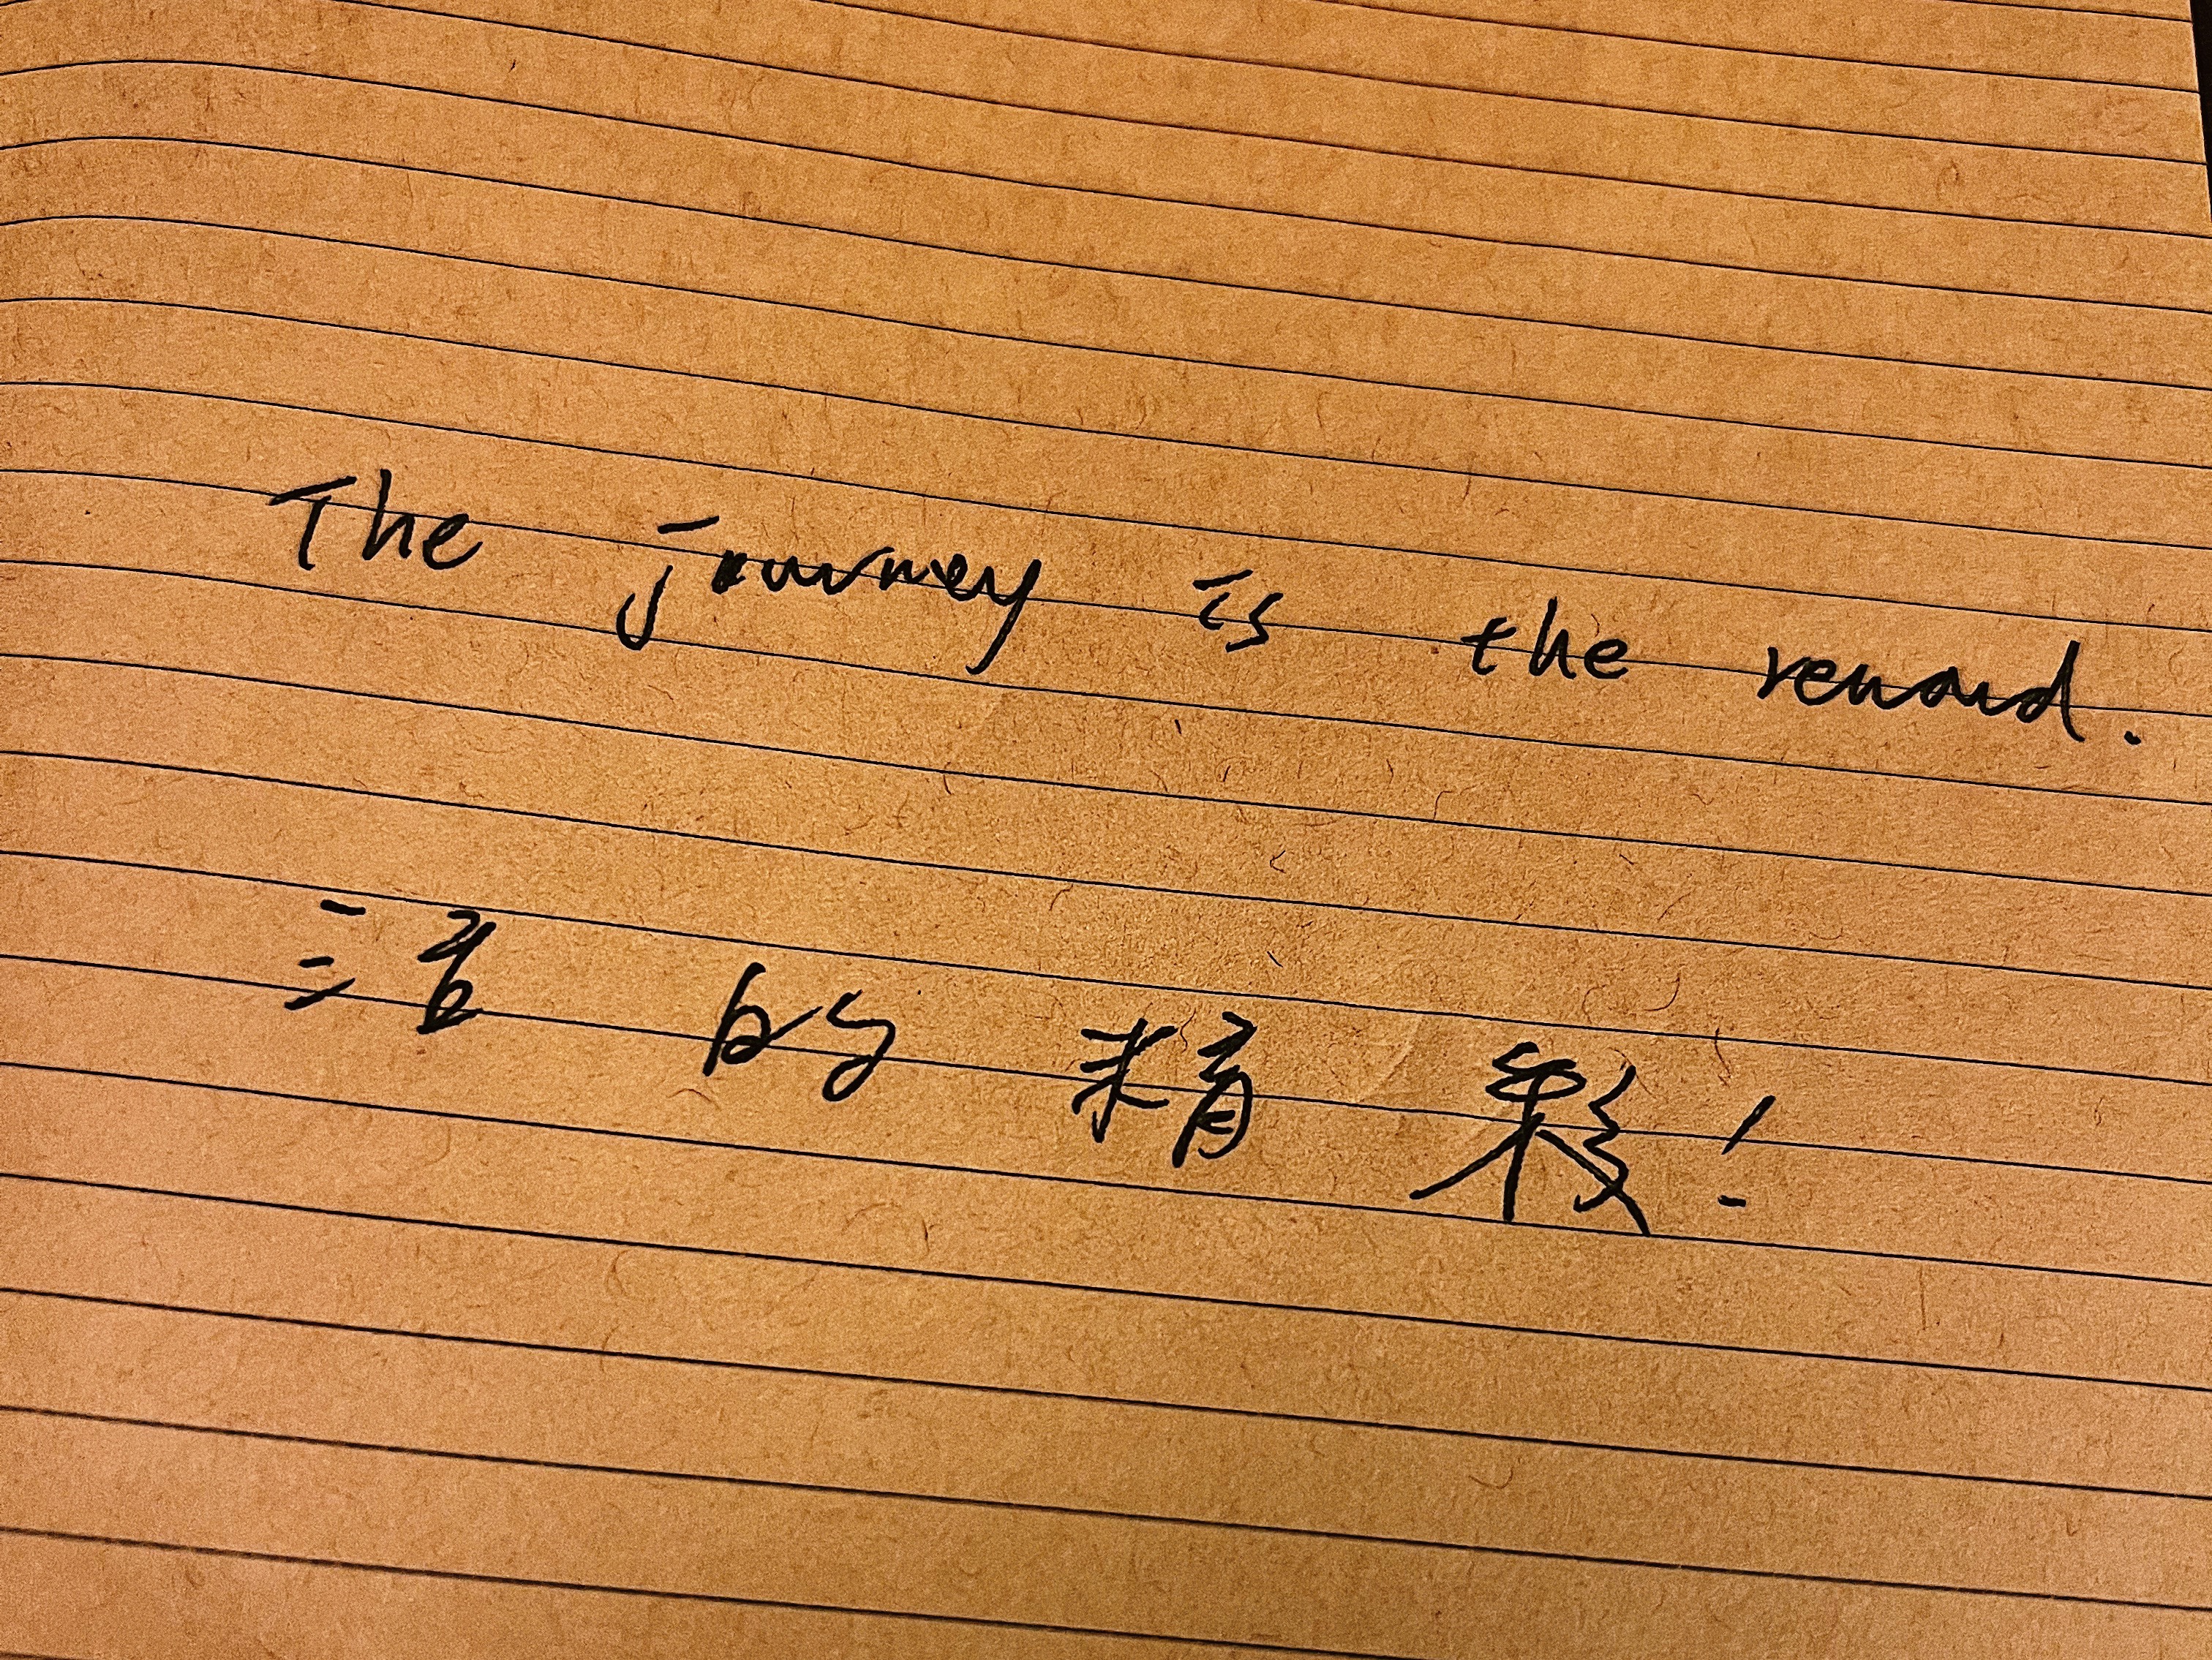 The journey is the reward.
活的精彩!